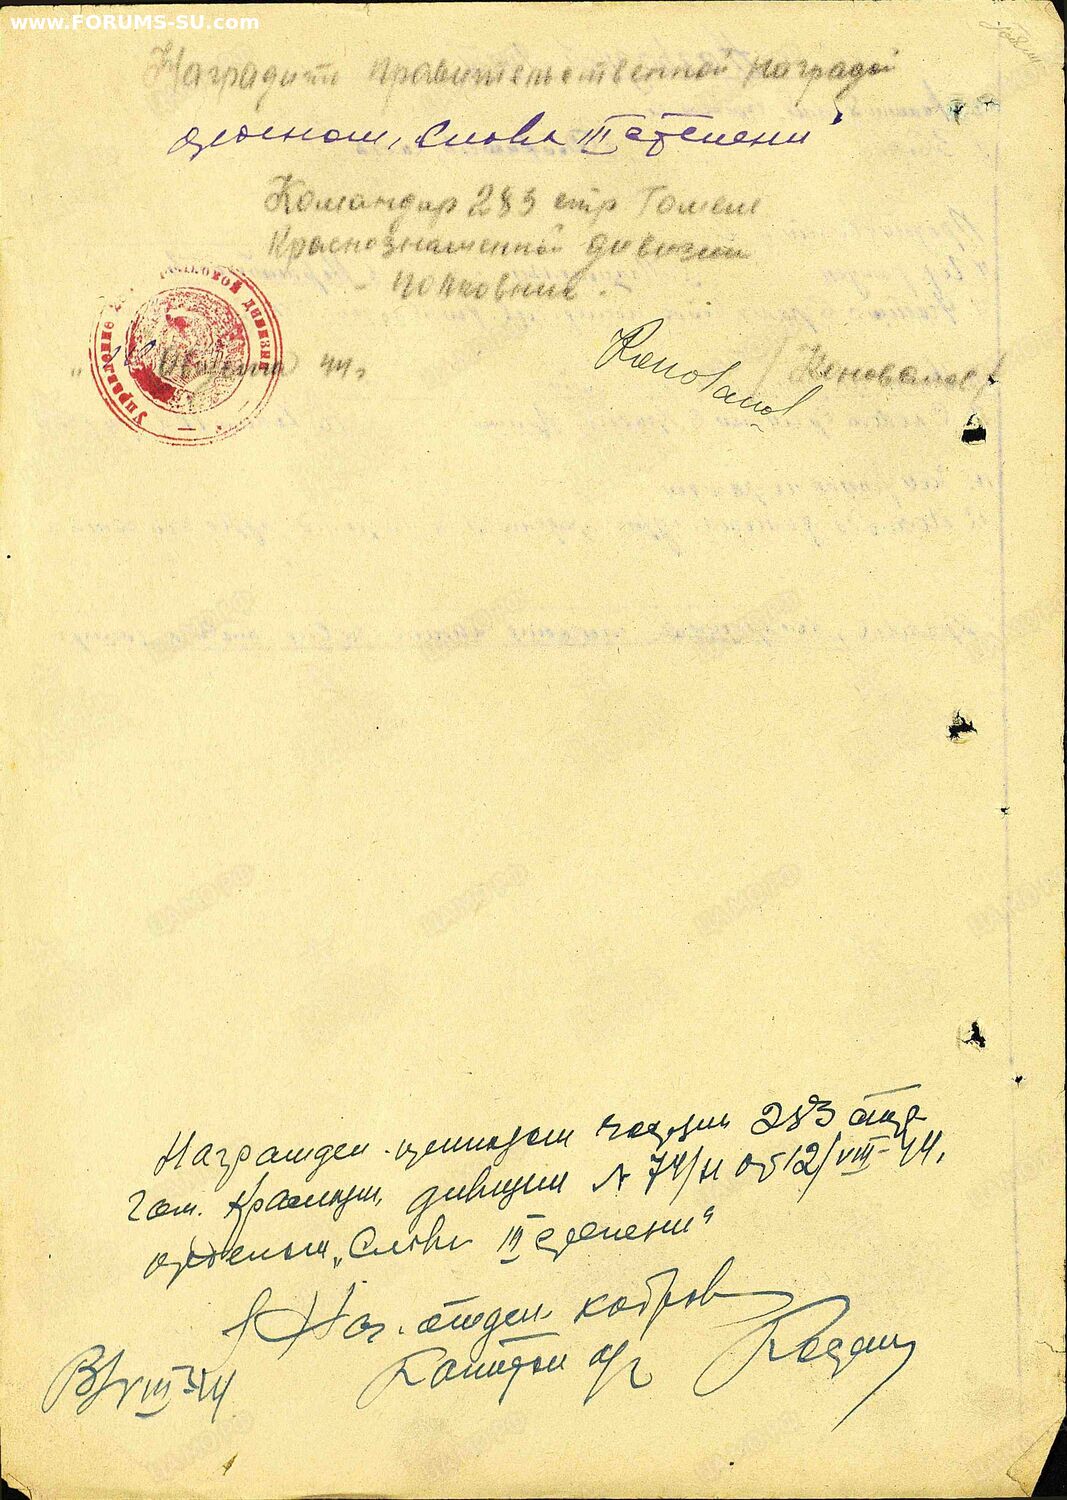 www.FORUMS-SU.com
Наградить правительственной наградой
орденом „Слова III степени“
Командир 283 стр Гомель
Краснознаменной дивизии
- полковник -
Управление ... дивизии
августа 44 г
Коновалов /Коновалов/
Награжден приказом частям 283 стр
Гом. Краснозн. дивизии № 74/н от 12/VIII-44,
орденом „Славы III степени“
Нач. отдел. кадров
Капитан а/с
VIII-44